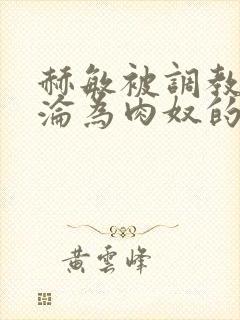 赫敏被調教
淪為肉奴的
黃雲峰